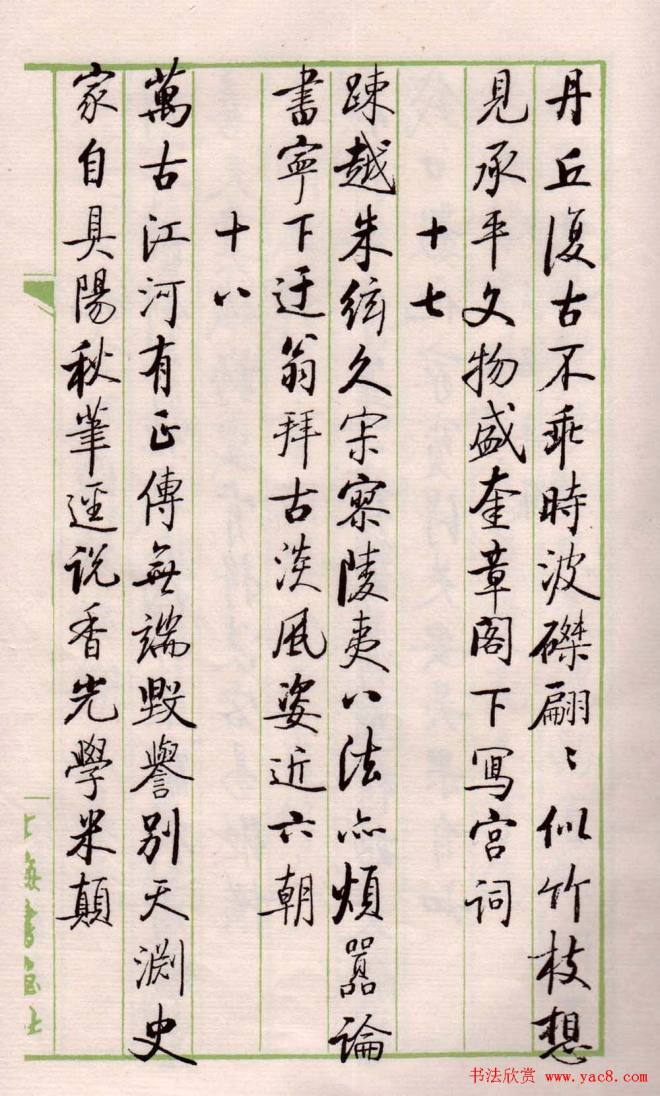 丹丘復古不乖時波磔翩〻似竹枝想
見承平文物盛奎章阁下寫宮詞
十七
踈越朱絃久寂寥陵夷八法亦煩囂論
書寧下迂翁拜古淡風姿近六朝
十八
萬古江河有正傳無端毀譽別天淵史
家自具陽秋筆逕说香光學米顛
上海書畫社
书法欣赏 www.yac8.com